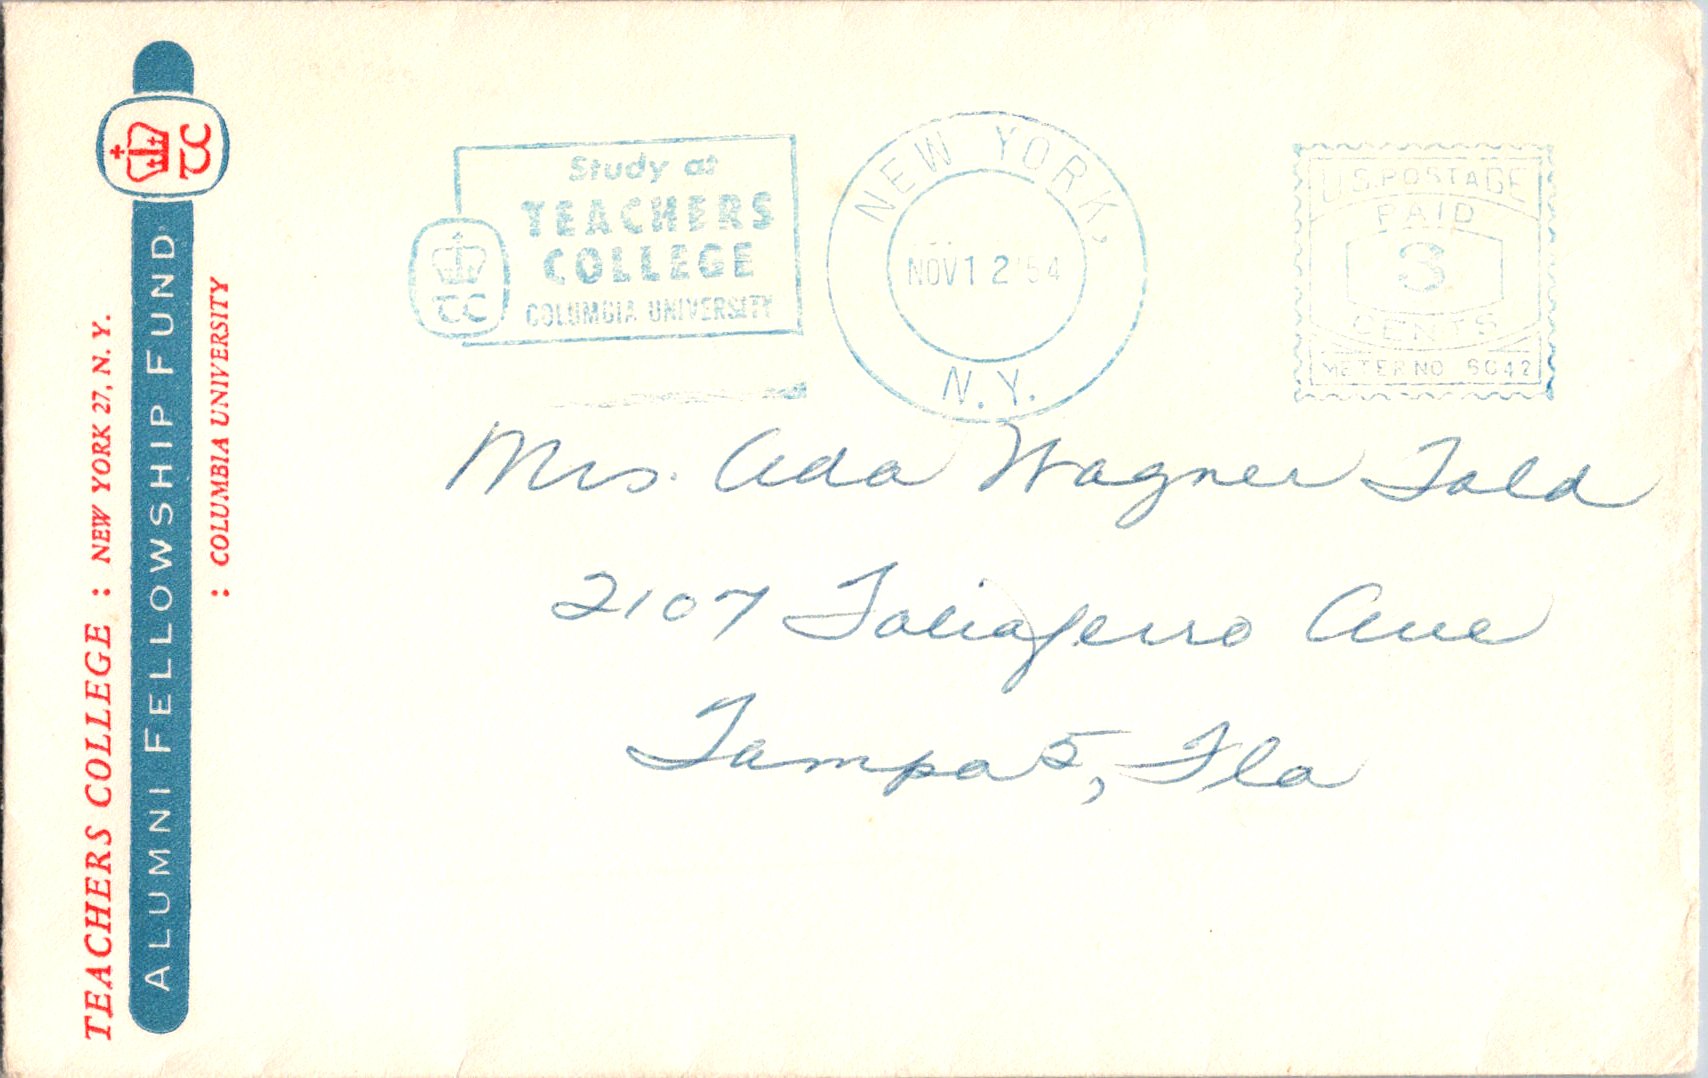 TEACHERS COLLEGE : NEW YORK 27, N. Y.
ALUMNI FELLOWSHIP FUND
: COLUMBIA UNIVERSITY
TC
Study at
TEACHERS
COLLEGE
COLUMBIA UNIVERSITY
TC
NEW YORK,
NOV 12 '54
N.Y.
U.S. POSTAGE
PAID
3
CENTS
METER NO 6042
Mrs. Ada Wagner Told
2107 Taliaferro Ave
Tampa 5, Fla